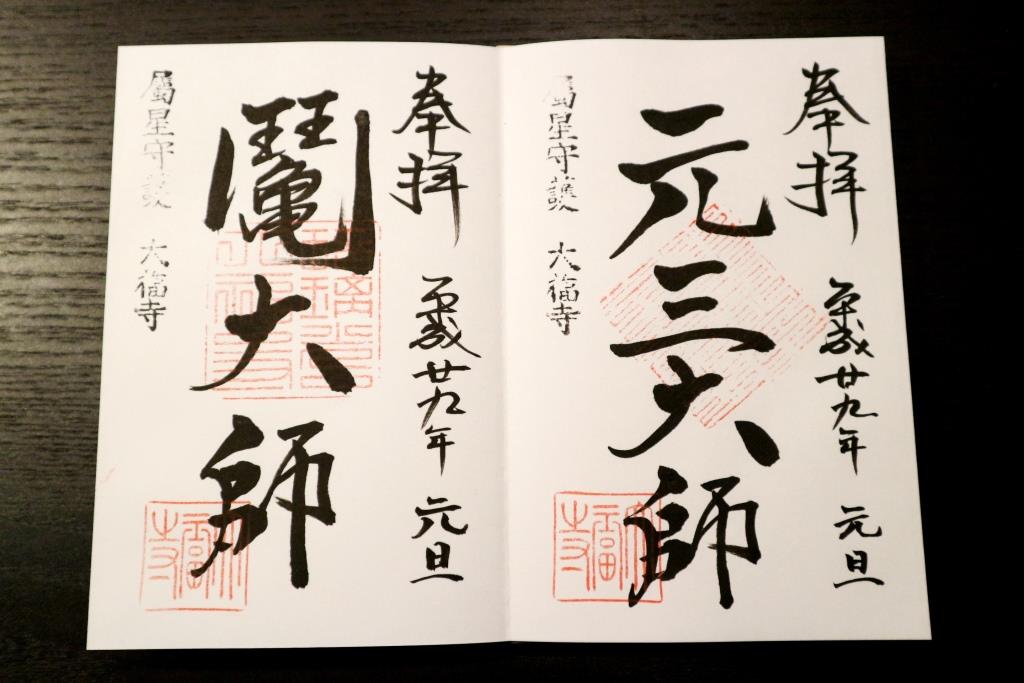 奉拝 平成廿九年 元旦
元三大師
屬星守護 大福寺
奉拝 平成廿九年 元旦
鬮大師
屬星守護 大福寺